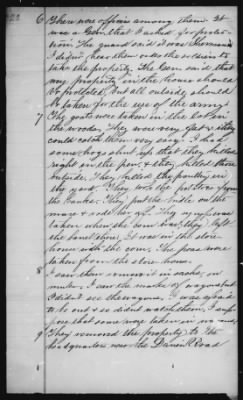 6 There were officers among them. It
was a Gen. that I asked for protec-
tion. The guard said it was Sherman
I didn't hear them order the soldiers to
take the property. The Gen. said that
my property in the house should
be protected, but all outside should
be taken for the use of the army.
7 The goats were taken in the lot in
the woods. They were very fat & they
could catch them very easy. I had
some hogs shut up that they killed
right in the pen, & they killed those
outside. They killed the poultry in
the yard. They took the potatoes from
the banks. They put the bridle on the
mare & rode her off. The
taken when the corn was, they left
the It was in the store
house with the corn. The peas were
taken from the store house.
8 I saw them remove it in sacks, on
mules. I saw the marks of wagons but
I didn't see the wagons. I was afraid
to go out & so didn't watch them. I sup-
pose that some were taken in wagons.
9 They removed the property to the
headquarters near the Road